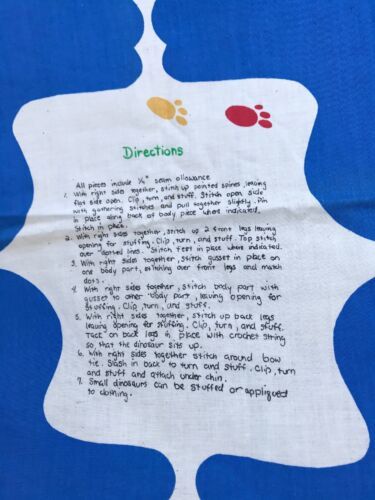 Directions
All pieces include 1/4" seam allowance
1. With right sides together, stitch up pointed spines, leaving
flat side open. Clip, turn, and stuff. Stitch open side
with gathering stitches and pull together slightly. Pin
in place along back of body piece where indicated.
Stitch in place.
2. With right sides together, stitch up 2 front legs leaving
opening for stuffing. Clip, turn, and stuff. Top stitch
over dotted lines. Stitch feet in place where indicated.
3. With right sides together, stitch gusset in place on
one body part, stitching over front legs and match
dots.
4. With right sides together, stitch body part with
gusset to other body part, leaving opening for
stuffing. Clip, turn, and stuff.
5. With right sides together, stitch up back legs
leaving opening for stuffing. Clip, turn, and stuff.
Tack on back legs in place with crochet string
so, that the dinosaur sits up.
6. With right sides together stitch around bow
tie. Slash in back to turn and stuff. Clip, turn
and stuff and attach under chin.
7. Small dinosaurs can be stuffed or appliqued
to clothing.